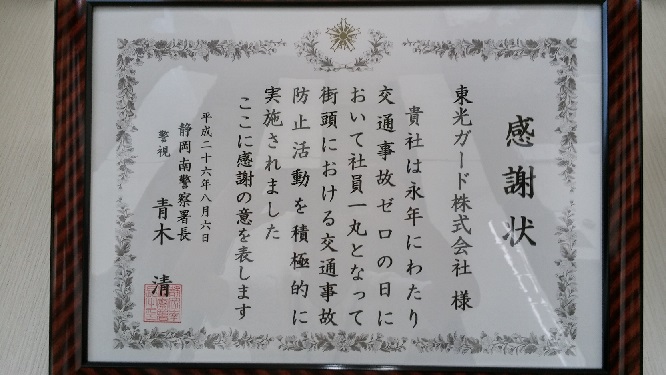 感謝状
東光ガード株式会社 様
貴社は永年にわたり
交通事故ゼロの日に
おいて社員一丸となって
街頭における交通事故
防止活動を積極的に
実施されました
ここに感謝の意を表します
平成二十六年八月六日
静岡南警察署長
警視 青木 清